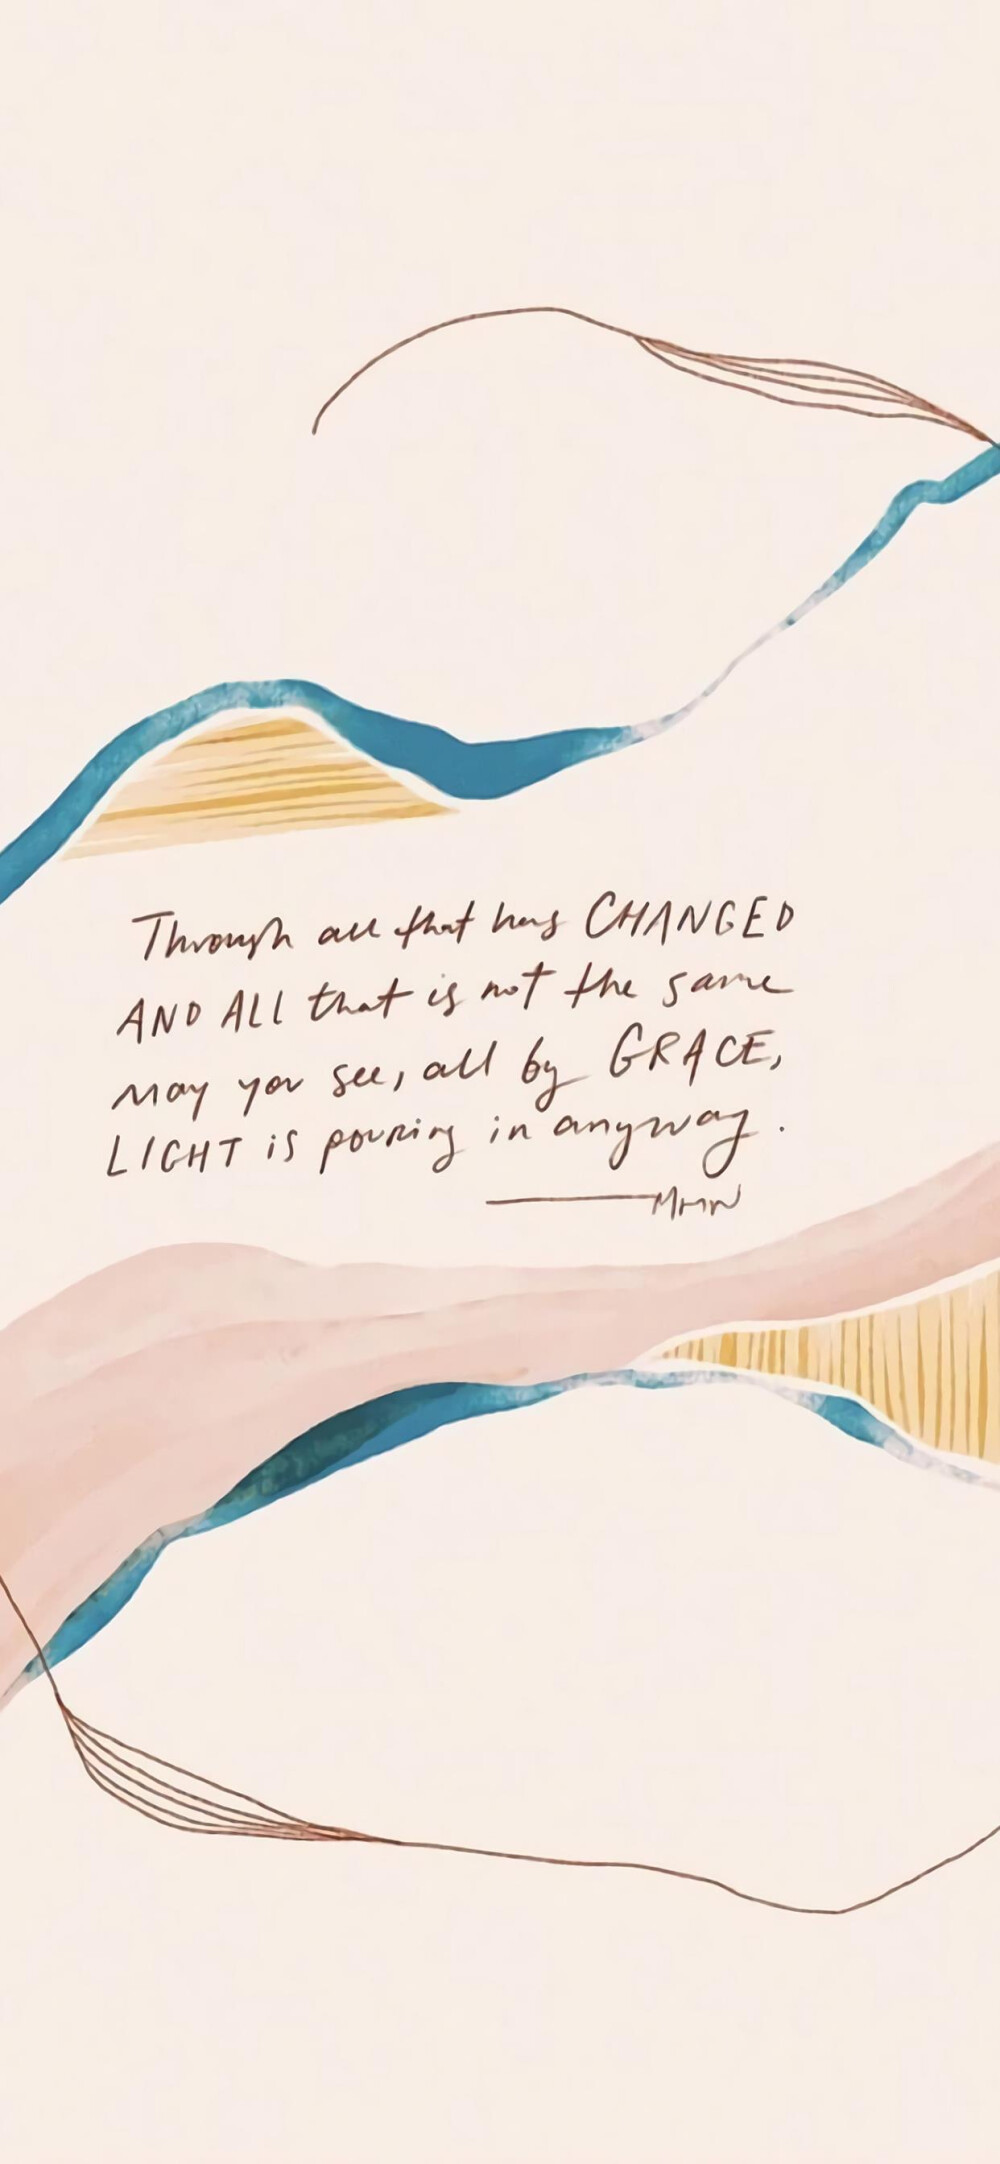 Through all that has CHANGED
AND ALL that is not the same
may you see, all by GRACE,
LIGHT is pouring in anyway.
—MHN